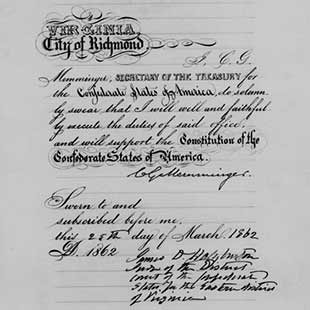 VIRGINIA
City of Richmond
I, C. G.
Memminger, SECRETARY OF THE TREASURY for
the Confederate States of America, do solemn
ly swear that I will well and faithful
ly execute the duties of said office,
and will support the Constitution of the
Confederate States of America.
C. G. Memminger.
Sworn to and
subscribed before me,
this 28th day of March 1862
D. 1862
James D Halyburton
Judge of the District
Court of the Confederate
States for the Eastern District
of Virginia